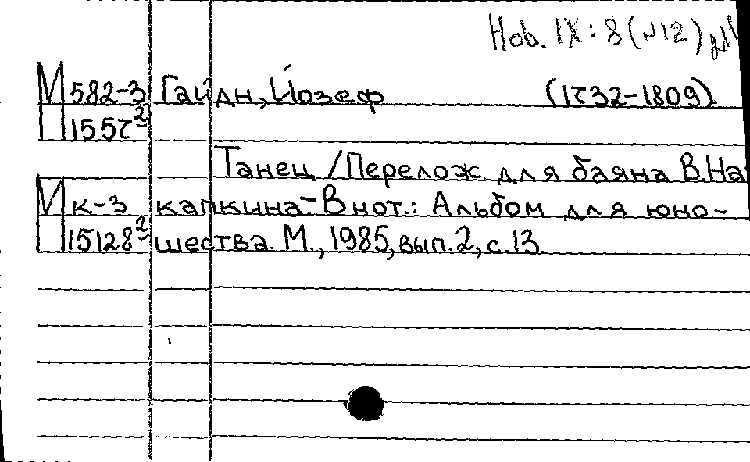 Нов. IX: 8 (№12)
М 582-3 Гайдн, Йозеф (1732-1809)
П 1557²
Танец / Перелож. для баяна В. На
М к-3 капкина.- В нот.: Альбом для юно-
П 15128² шества. М., 1985, вып. 2, с. 13